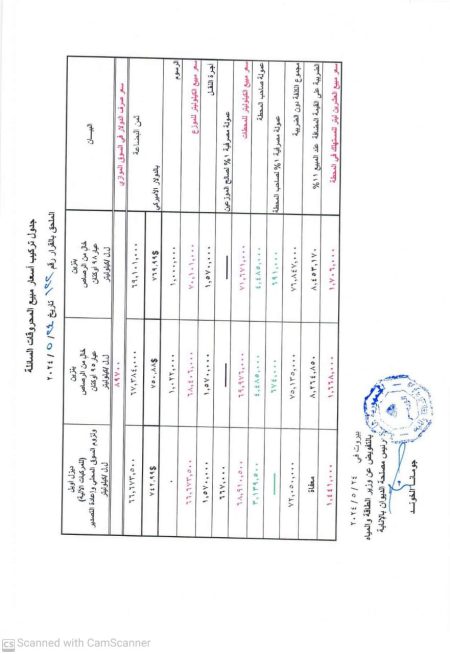 جدول تركيب أسعار مبيع المحروقات السائلة
الملحق بالقرار رقم تاريخ ٢٠٢٤/٥/
البيـــان
بنزين
خال من الرصاص
عيار ٩٨ أوكتان
ل.ل/كيلوليتر
بنزين
خال من الرصاص
عيار ٩٥ أوكتان
ل.ل/كيلوليتر
ديزل أويل
(للمركبات الآلية)
ولزوم السوق المحلي وإعادة التصدير
ل.ل/كيلوليتر
سعر صرف الدولار في السوق الموازي
٨٩٧٠٠
ثمن البضاعة
بالدولار الأميركي
٧٦٩,٩٩$
٧٥٠,٨٨$
٧٤٢,٩٩$
٦٩,١٠١,٠٠٠
٦٧,٣٨٤,٠٠٠
٦٦,٦٧٣,٥٠٠
الرسوم
١,٠٠٠,٠٠٠
١,٠٢٢,٠٠٠
٠
سعر مبيع الكيلوليتر للموزع
٧٠,١٠١,٠٠٠
٦٨,٤٠٦,٠٠٠
٦٦,٦٧٣,٥٠٠
أجرة النقل
١,٥٧٠,٠٠٠
١,٥٧٠,٠٠٠
١,٥٧٠,٠٠٠
عمولة مصرفية ١% لصالح الموزعين
٦٦٧,٠٠٠
سعر مبيع الكيلوليتر للمحطات
٧١,٦٧١,٠٠٠
٦٩,٩٧٦,٠٠٠
٦٨,٩١٠,٥٠٠
عمولة صاحب المحطة
٤,٤٨٥,٠٠٠
٤,٤٨٥,٠٠٠
٣,١٣٩,٥٠٠
عمولة مصرفية ١% لصاحب المحطة
٦٩١,٠٠٠
٦٧٤,٠٠٠
مجموع الكلفة دون الضريبة
٧٦,٨٤٧,٠٠٠
٧٥,١٣٥,٠٠٠
٧٢,٠٥٠,٠٠٠
الضريبة على القيمة المضافة عند المبيع ١١%
٨,٤٥٣,١٧٠
٨,٢٦٤,٨٥٠
معفاة
سعر مبيع العشرين ليتر للمستهلك في المحطة
١,٧٠٦,٠٠٠
١,٦٦٨,٠٠٠
١,٤٤١,٠٠٠
بيروت في ٢٠٢٤/٥/٢٤
بالتفويض عن وزير الطاقة والمياه
رئيس مصلحة الديوان بالإنابة
CS Scanned with CamScanner